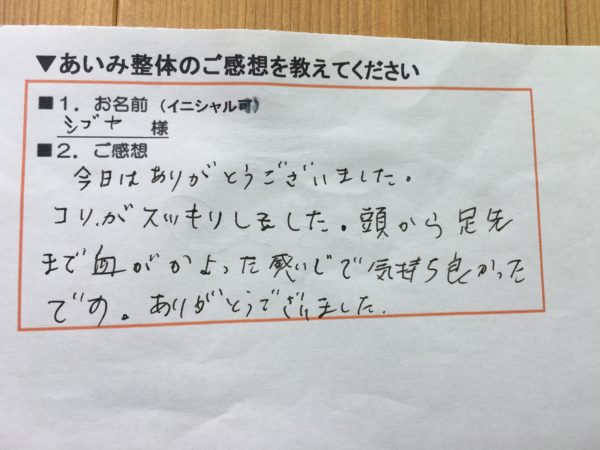 ▼あいみ整体のご感想を教えてください
■1．お名前（イニシャル可）
シブヤ 様
■2．ご感想
今日はありがとうございました。
コリがスッキリしました。頭から足先
まで血がかよった感いじで気持ち良かった
です。ありがとうございました.